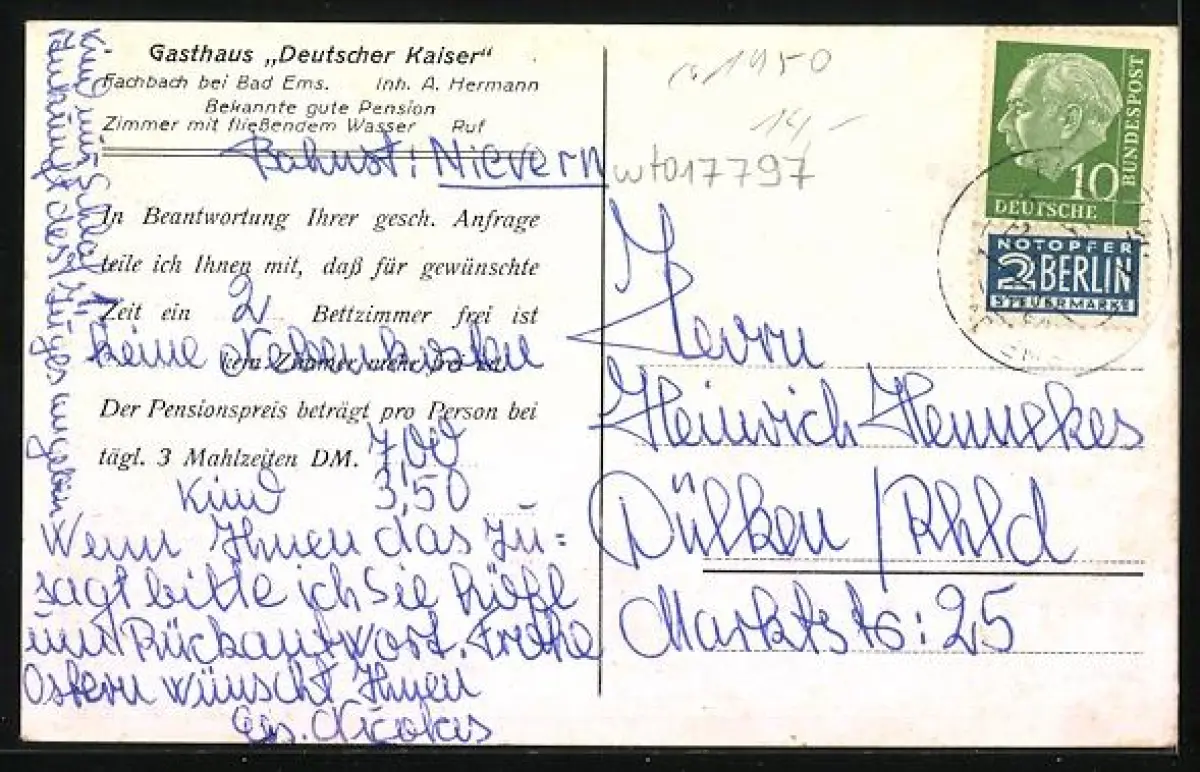 Gasthaus „Deutscher Kaiser“
Fachbach bei Bad Ems. Inh. A. Hermann
Bekannte gute Pension
Zimmer mit fließendem Wasser Ruf
Bahnst: Nievern
In Beantwortung Ihrer gesch. Anfrage
teile ich Ihnen mit, daß für gewünschte
Zeit ein 2 Bettzimmer frei ist
kein Zimmer mehr frei ist.
keine Nebenkosten
Der Pensionspreis beträgt pro Person bei
tägl. 3 Mahlzeiten DM. 7,00
Kind 3,50
Wenn Ihnen das zu=
sagt bitte ich Sie höfl
um Rückantwort. Frohe
Ostern wünscht Ihnen
Nicolas
Ankunft des Zuges angeben
1950
14,-
wto17797
10
DEUTSCHE
BUNDESPOST
NOTOPFER
2 BERLIN
STEUERMARKE
Herrn
Heinrich Hennekes
Dülken / Rhld
Marktstr: 25